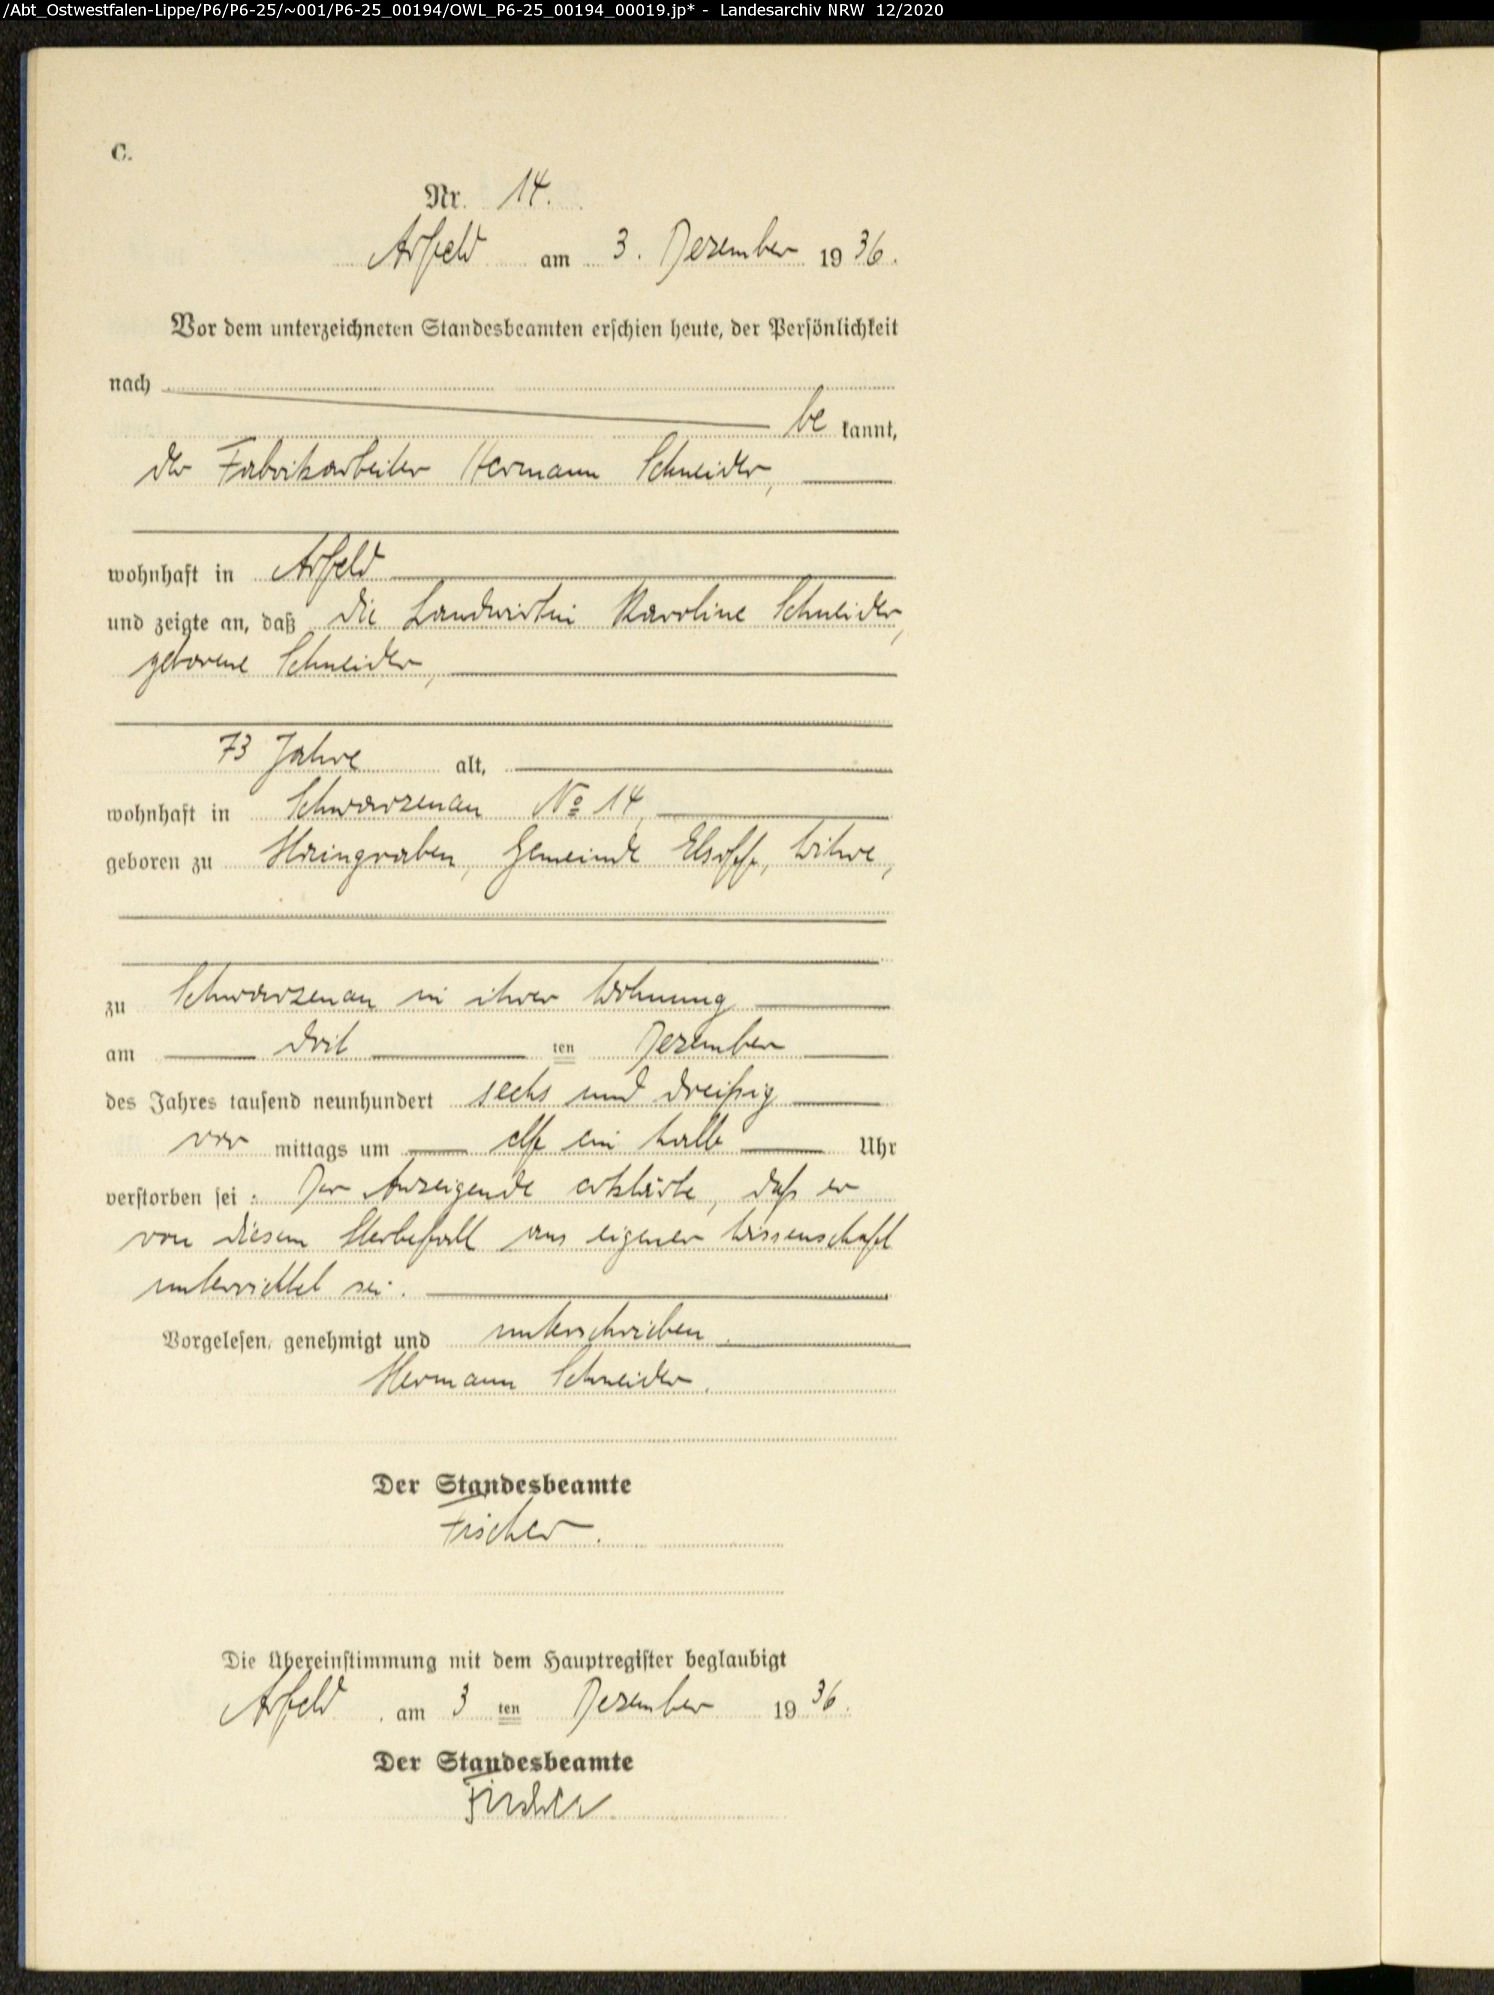 /Abt_Ostwestfalen-Lippe/P6/P6-25/~001/P6-25_00194/OWL_P6-25_00194_00019.jp* - Landesarchiv NRW 12/2020
C.
Nr. 14.
Arfeld am 3. Dezember 1936.
Vor dem unterzeichneten Standesbeamten erschien heute, der Persönlichkeit
nach
be kannt,
der Fabrikarbeiter Hermann Schneider,
wohnhaft in Arfeld
und zeigte an, daß die Landwirtin Karoline Schneider,
geborene Schneider,
73 Jahre alt,
wohnhaft in Schwarzenau No 14
geboren zu Haingraben, Gemeinde Elsoff, Witwe,
zu Schwarzenau in ihrer Wohnung
am drit ten Dezember
des Jahres tausend neunhundert sechs und dreißig
vor mittags um elf ein halb Uhr
verstorben sei: Der Anzeigende erklärte, daß er
von diesem Sterbefall aus eigener Wissenschaft
unterrichtet sei.
Vorgelesen, genehmigt und unterschrieben.
Hermann Schneider.
Der Standesbeamte
Fischer.
Die Übereinstimmung mit dem Hauptregister beglaubigt
Arfeld, am 3 ten Dezember 1936.
Der Standesbeamte
Fischer